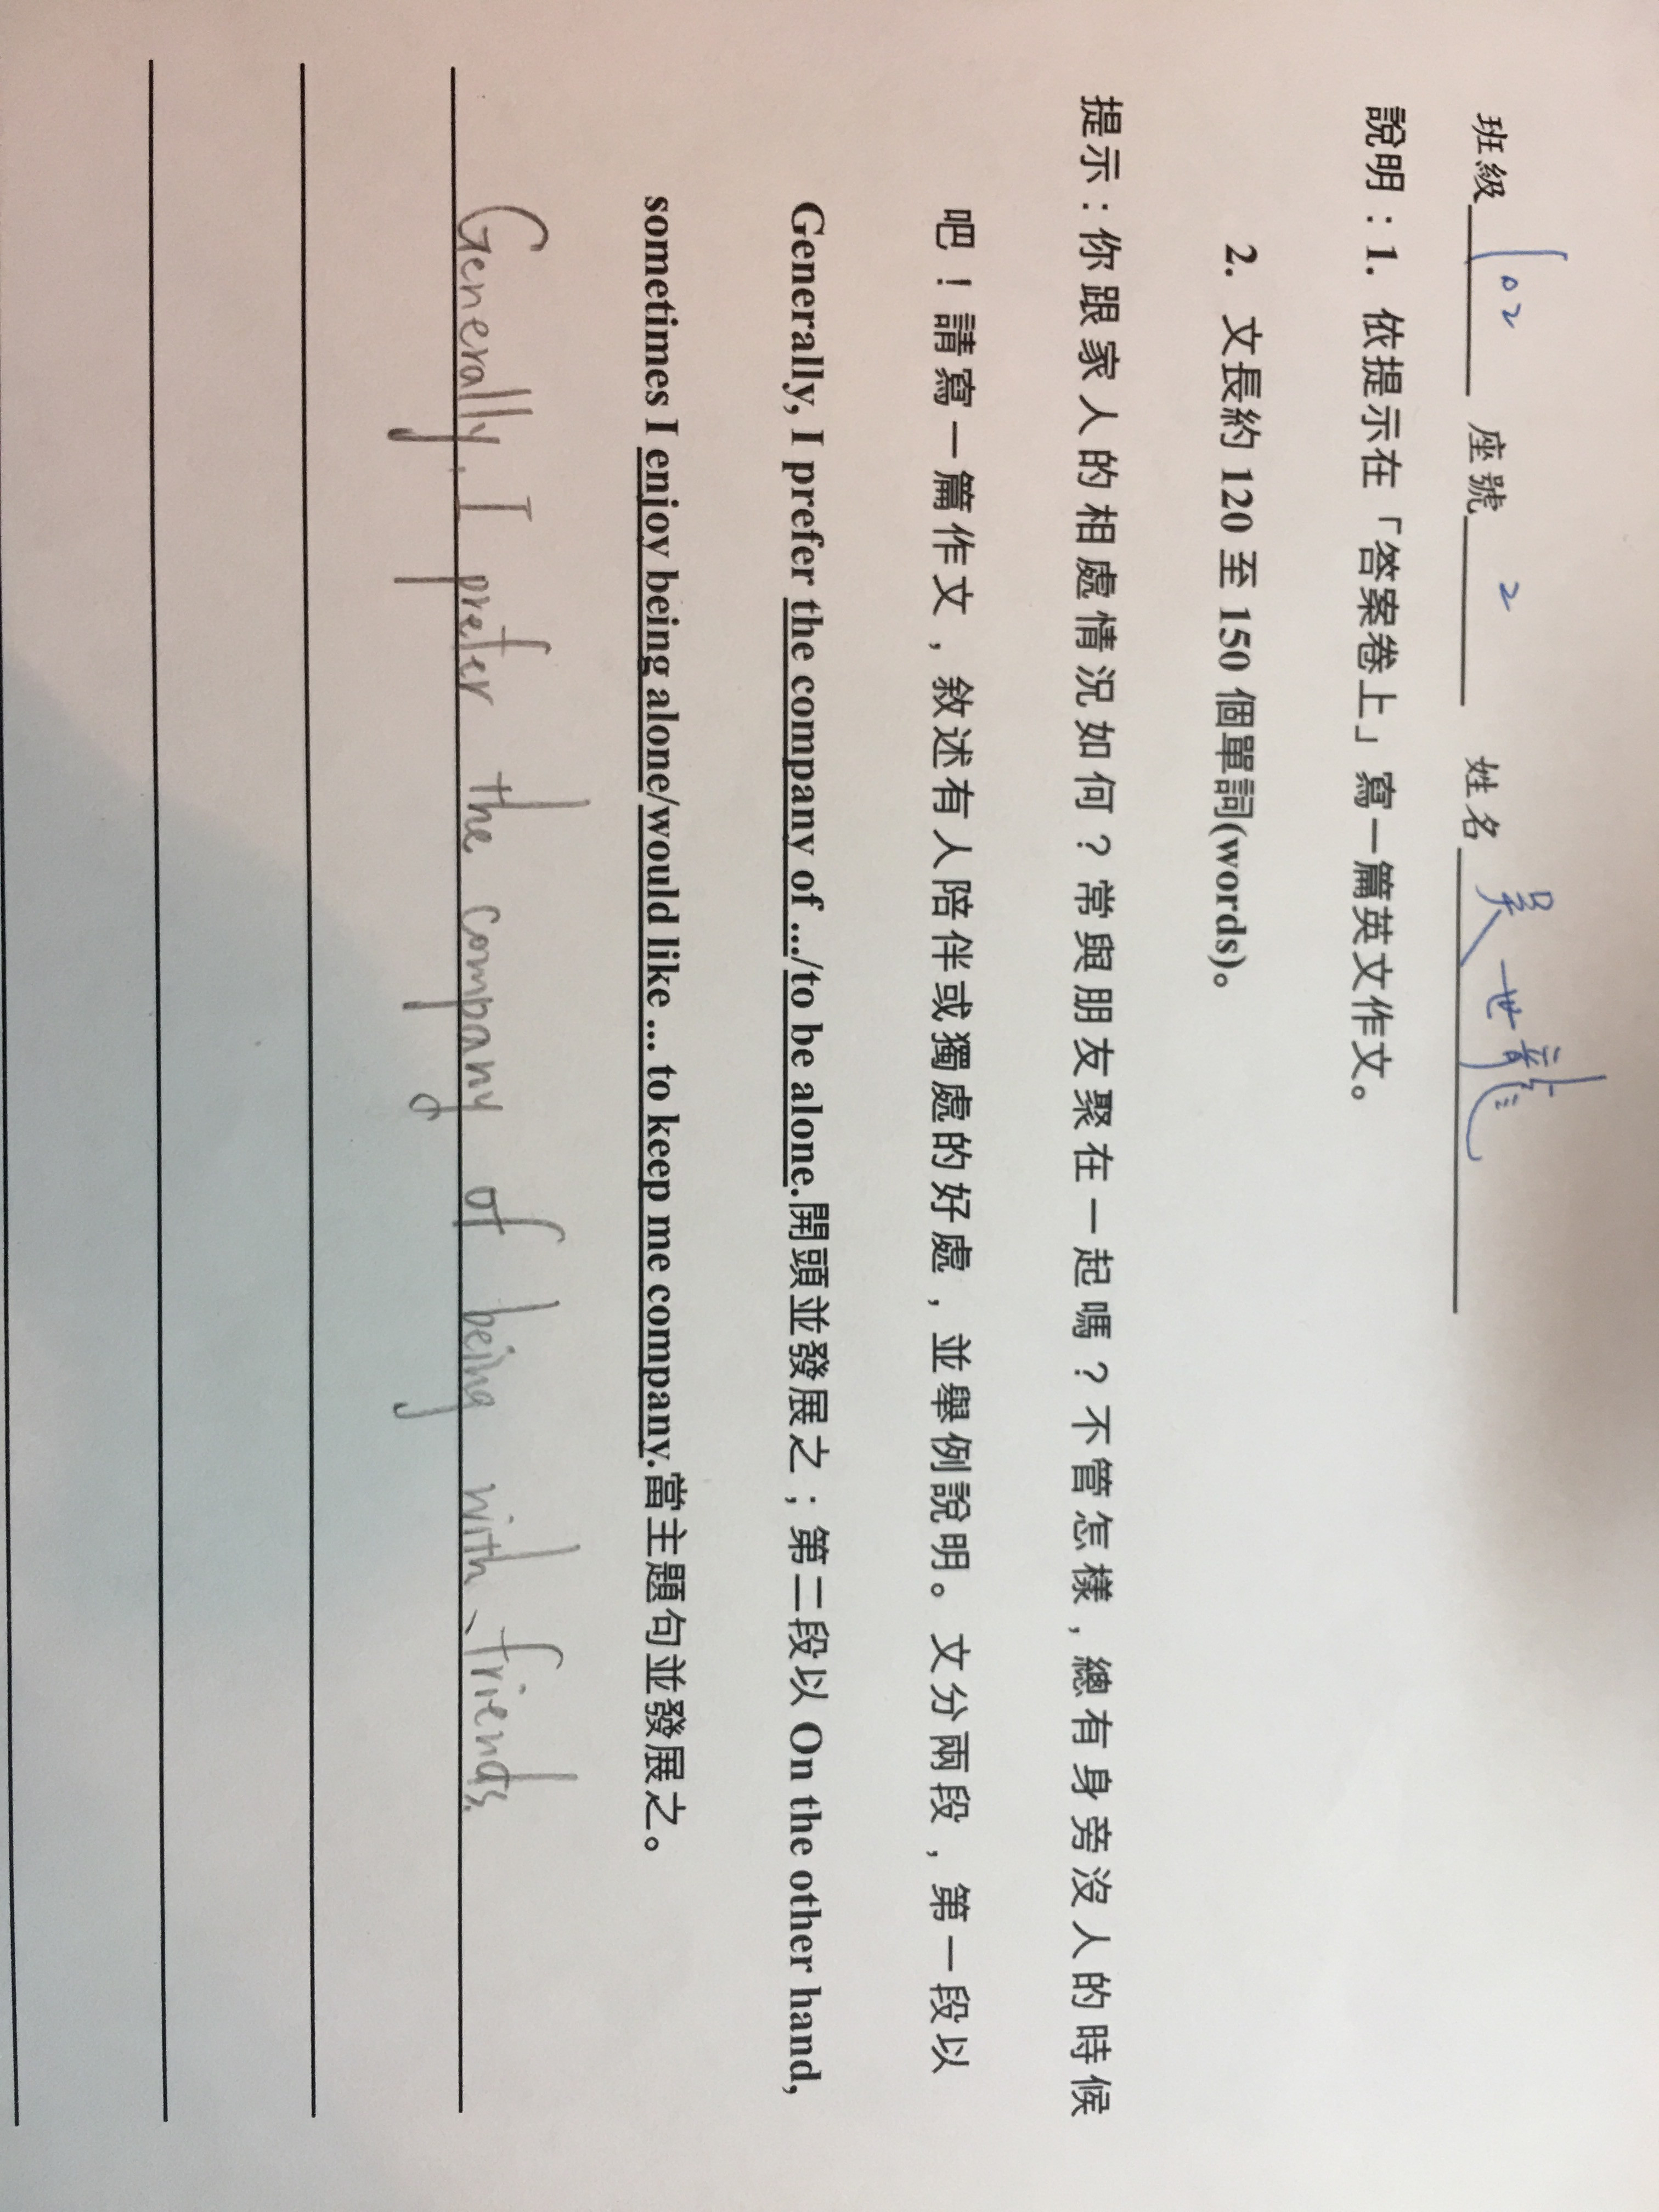 班級 102 座號 2 姓名 吳世龍
說明：1. 依提示在「答案卷上」寫一篇英文作文。
2. 文長約 120 至 150 個單詞(words)。
提示：你跟家人的相處情況如何？常與朋友聚在一起嗎？不管怎樣，總有身旁沒人的時候
吧！請寫一篇作文，敘述有人陪伴或獨處的好處，並舉例說明。文分兩段，第一段以
Generally, I prefer the company of .../to be alone.開頭並發展之；第二段以 On the other hand,
sometimes I enjoy being alone/would like ... to keep me company.當主題句並發展之。
Generally, I prefer the company of being with friends.